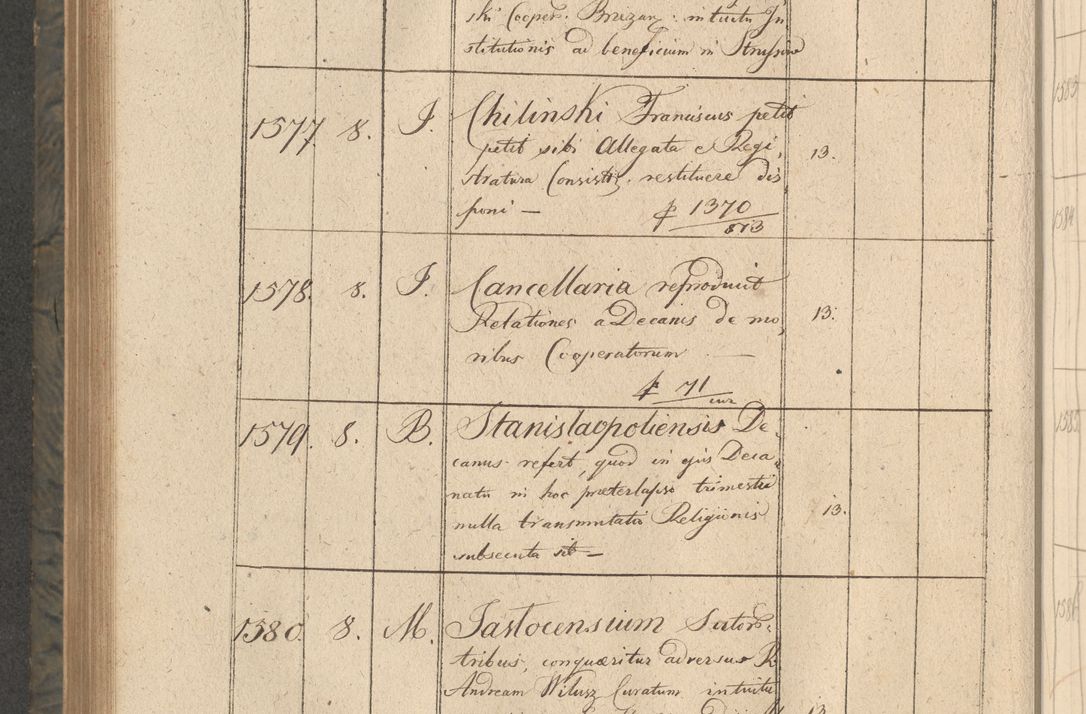 ski Cooper. Brzezan. intuitu In
stitutionis ad beneficium in Strussow
1577. 8. J. Chilinski Franciscus petit
petit sibi Allegata e Regi,
stratura Consistt. restituere dis
poni — # 1370/873 13.
1578. 8. J. Cancellaria reproducit
Relationes a Decanis de mo,
ribus Cooperatorum — 13.
# 71/cur
1579. 8. B. Stanislaopoliensis De,
canus refert, quod in ejus Deca,
natu in hoc praeterlapso trimestri
nulla transmutatio Religionis 13.
subsecuta sit —
1580. 8. M. Jastocensium Sutor.
tribus, conquaeritur adversus R.
Andream Witusz Curatum intuitu
13.
1583
1584
1585
1586